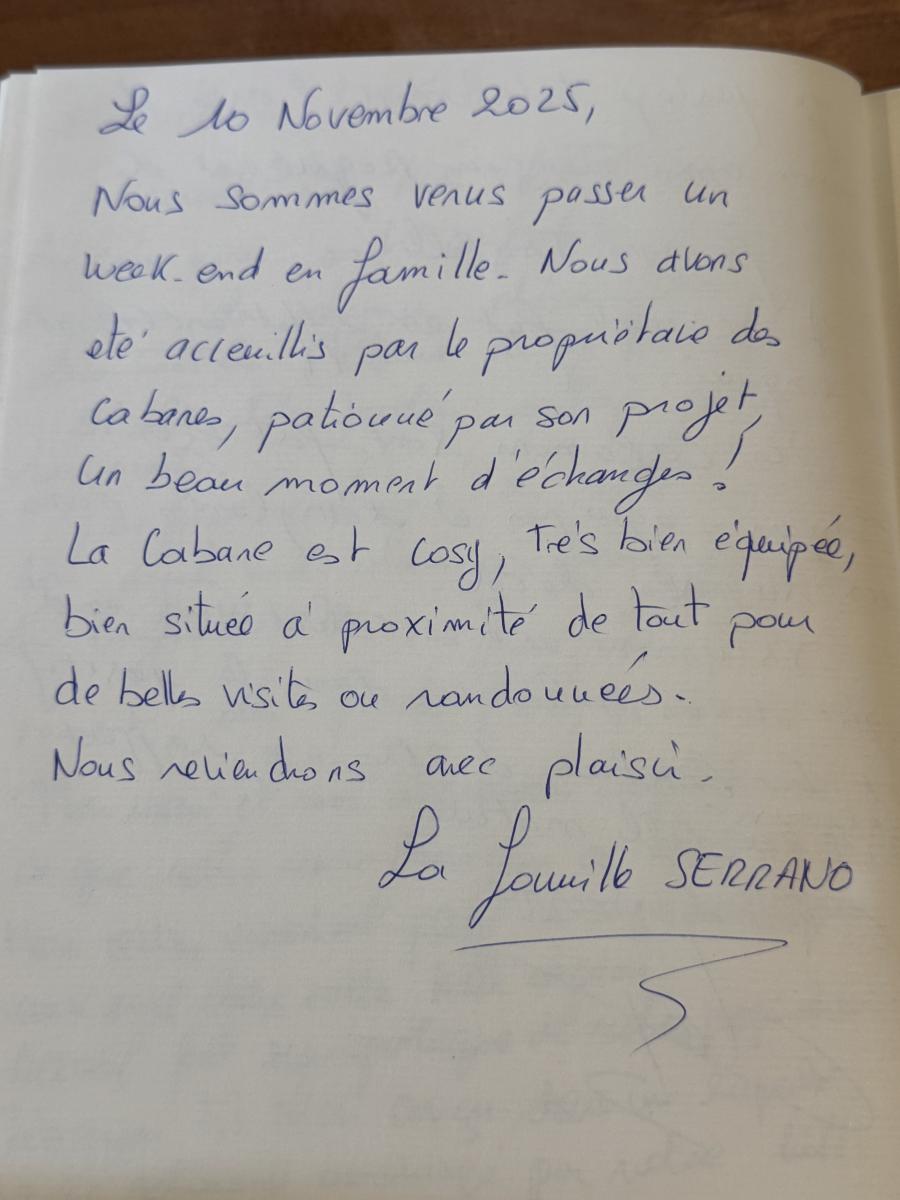 Le 10 Novembre 2025,
Nous sommes venus passer un
week-end en famille. Nous avons
été accueillis par le propriétaire des
cabanes, passionné par son projet,
un beau moment d'échanges !
La Cabane est cosy, très bien équipée,
bien située à proximité de tout pour
de belles visites ou randonnées.
Nous reviendrons avec plaisir.
La famille SERRANO